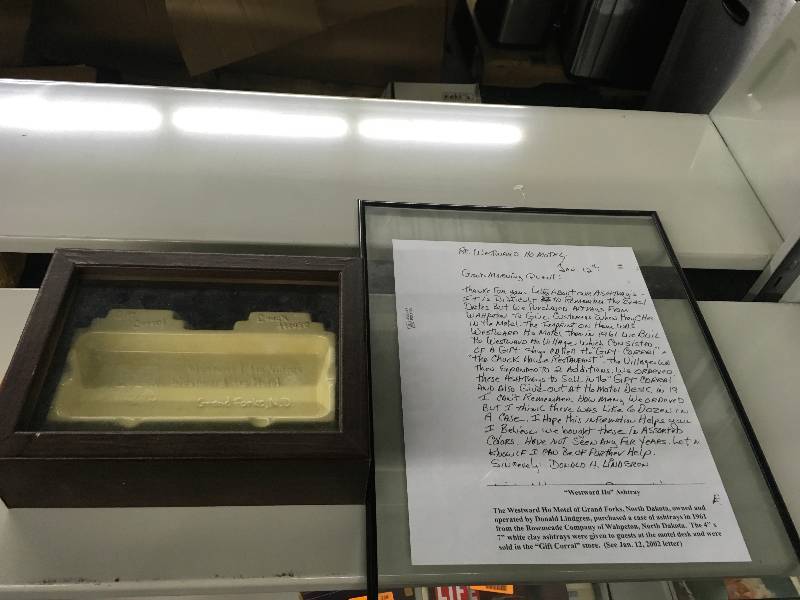 RE: WESTWARD HO MOTEL
JAN. 12th
GOOD MORNING
THANKS FOR your ABOUT ASHTRAYS
IT IS DIFFICULT TO REMEMBER THE EXACT
DATES BUT WE PURCHASED ASHTRAYS FROM
WAHPETON TO GIVE CUSTOMERS WHEN
IN THE MOTEL. THE IMPRINT ON THEM WAS
WESTWARD HO MOTEL THEN IN 1961 WE BUILT
THE WESTWARD HO VILLAGE which CONSISTED
OF A GIFT SHOP CALLED THE "GIFT CORRAL" &
THE CHUCK HOUSE RESTAURANT". THE VILLAGE WAS
THEN EXPANDED TO 2 ADDITIONS. WE ORDERED
THESE ASHTRAYS TO SELL IN THE "GIFT CORRAL
AND ALSO GIVE-OUT AT HO MOTEL DESK. IN 19
I CAN'T REMEMBER HOW MANY WE ORDERED
BUT I THINK THERE WAS LIKE 6 DOZEN IN
A CASE. I HOPE THIS INFORMATION HELPS you
I BELIEVE WE BOUGHT THESE IN ASSORTED
COLORS. HAVE NOT SEEN ANY FOR YEARS. LET
KNOW IF I CAN BE OF FURTHER HELP.
SINCERELY DONALD H. LINDGREN
"Westward Ho" Ashtray
The Westward Ho Motel of Grand Forks, North Dakota, owned and
operated by Donald Lindgren, purchased a case of ashtrays in 1961
from the Rosemeade Company of Wahpeton, North Dakota. The 4" x
7" white clay ashtrays were given to guests at the motel desk and were
sold in the "Gift Corral" store. (See Jan. 12, 2002 letter)
Grand Forks, N.D.
LIFE